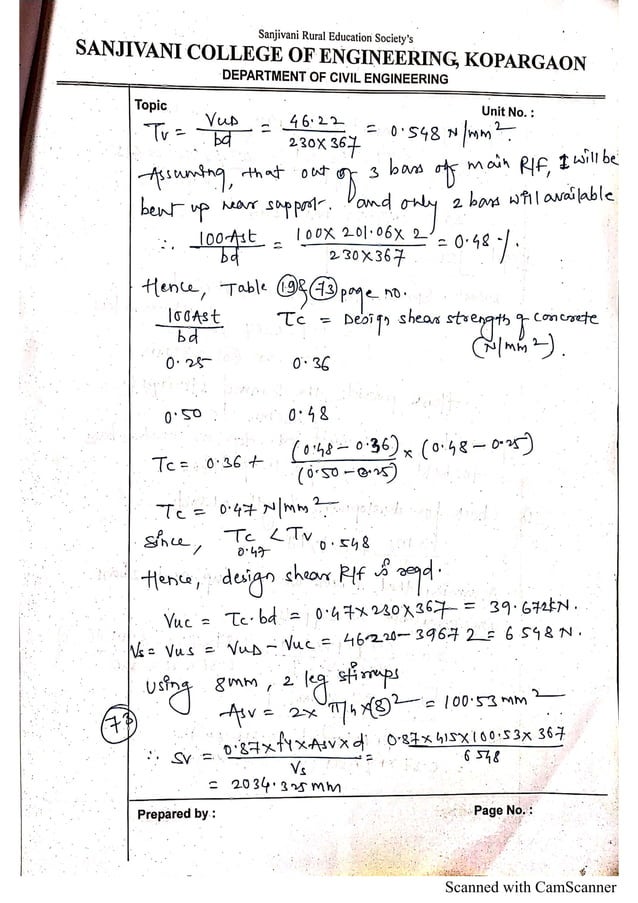 Sanjivani Rural Education Society's
SANJIVANI COLLEGE OF ENGINEERING, KOPARGAON
DEPARTMENT OF CIVIL ENGINEERING
Topic
Unit No. :
Tv = VuD / bd = 46.22 / 230 X 367 = 0.548 N/mm2.
Assuming, that out of 3 bars of main R/f, 1 will be
bent up near support. and only 2 bars will available
∴ 100Ast / bd = 100X 201.06 X 2 / 230X367 = 0.48 %.
Hence, Table 19 & 73 page no.
100Ast / bd Tc = Design shear strength of concrete
(N/mm2).
0.25 0.36
0.50 0.48
Tc = 0.36 + (0.48 - 0.36) / (0.50 - 0.25) x (0.48 - 0.25)
Tc = 0.47 N/mm2
Since, Tc < Tv
0.47 0.548
Hence, design shear R/f is reqd.
Vuc = Tc.bd = 0.47X230X367 = 39.672kN.
Vs = Vus = VuD - Vuc = 46220-39672 = 6548 N.
Using 8mm, 2 leg stirrups
Asv = 2x π/4 x(8)2 = 100.53 mm2
73
∴ Sv = 0.87xfyxAsvxd / Vs = 0.87x415x100.53x367 / 6548
= 2034.325 mm
Prepared by :
Page No. :
Scanned with CamScanner